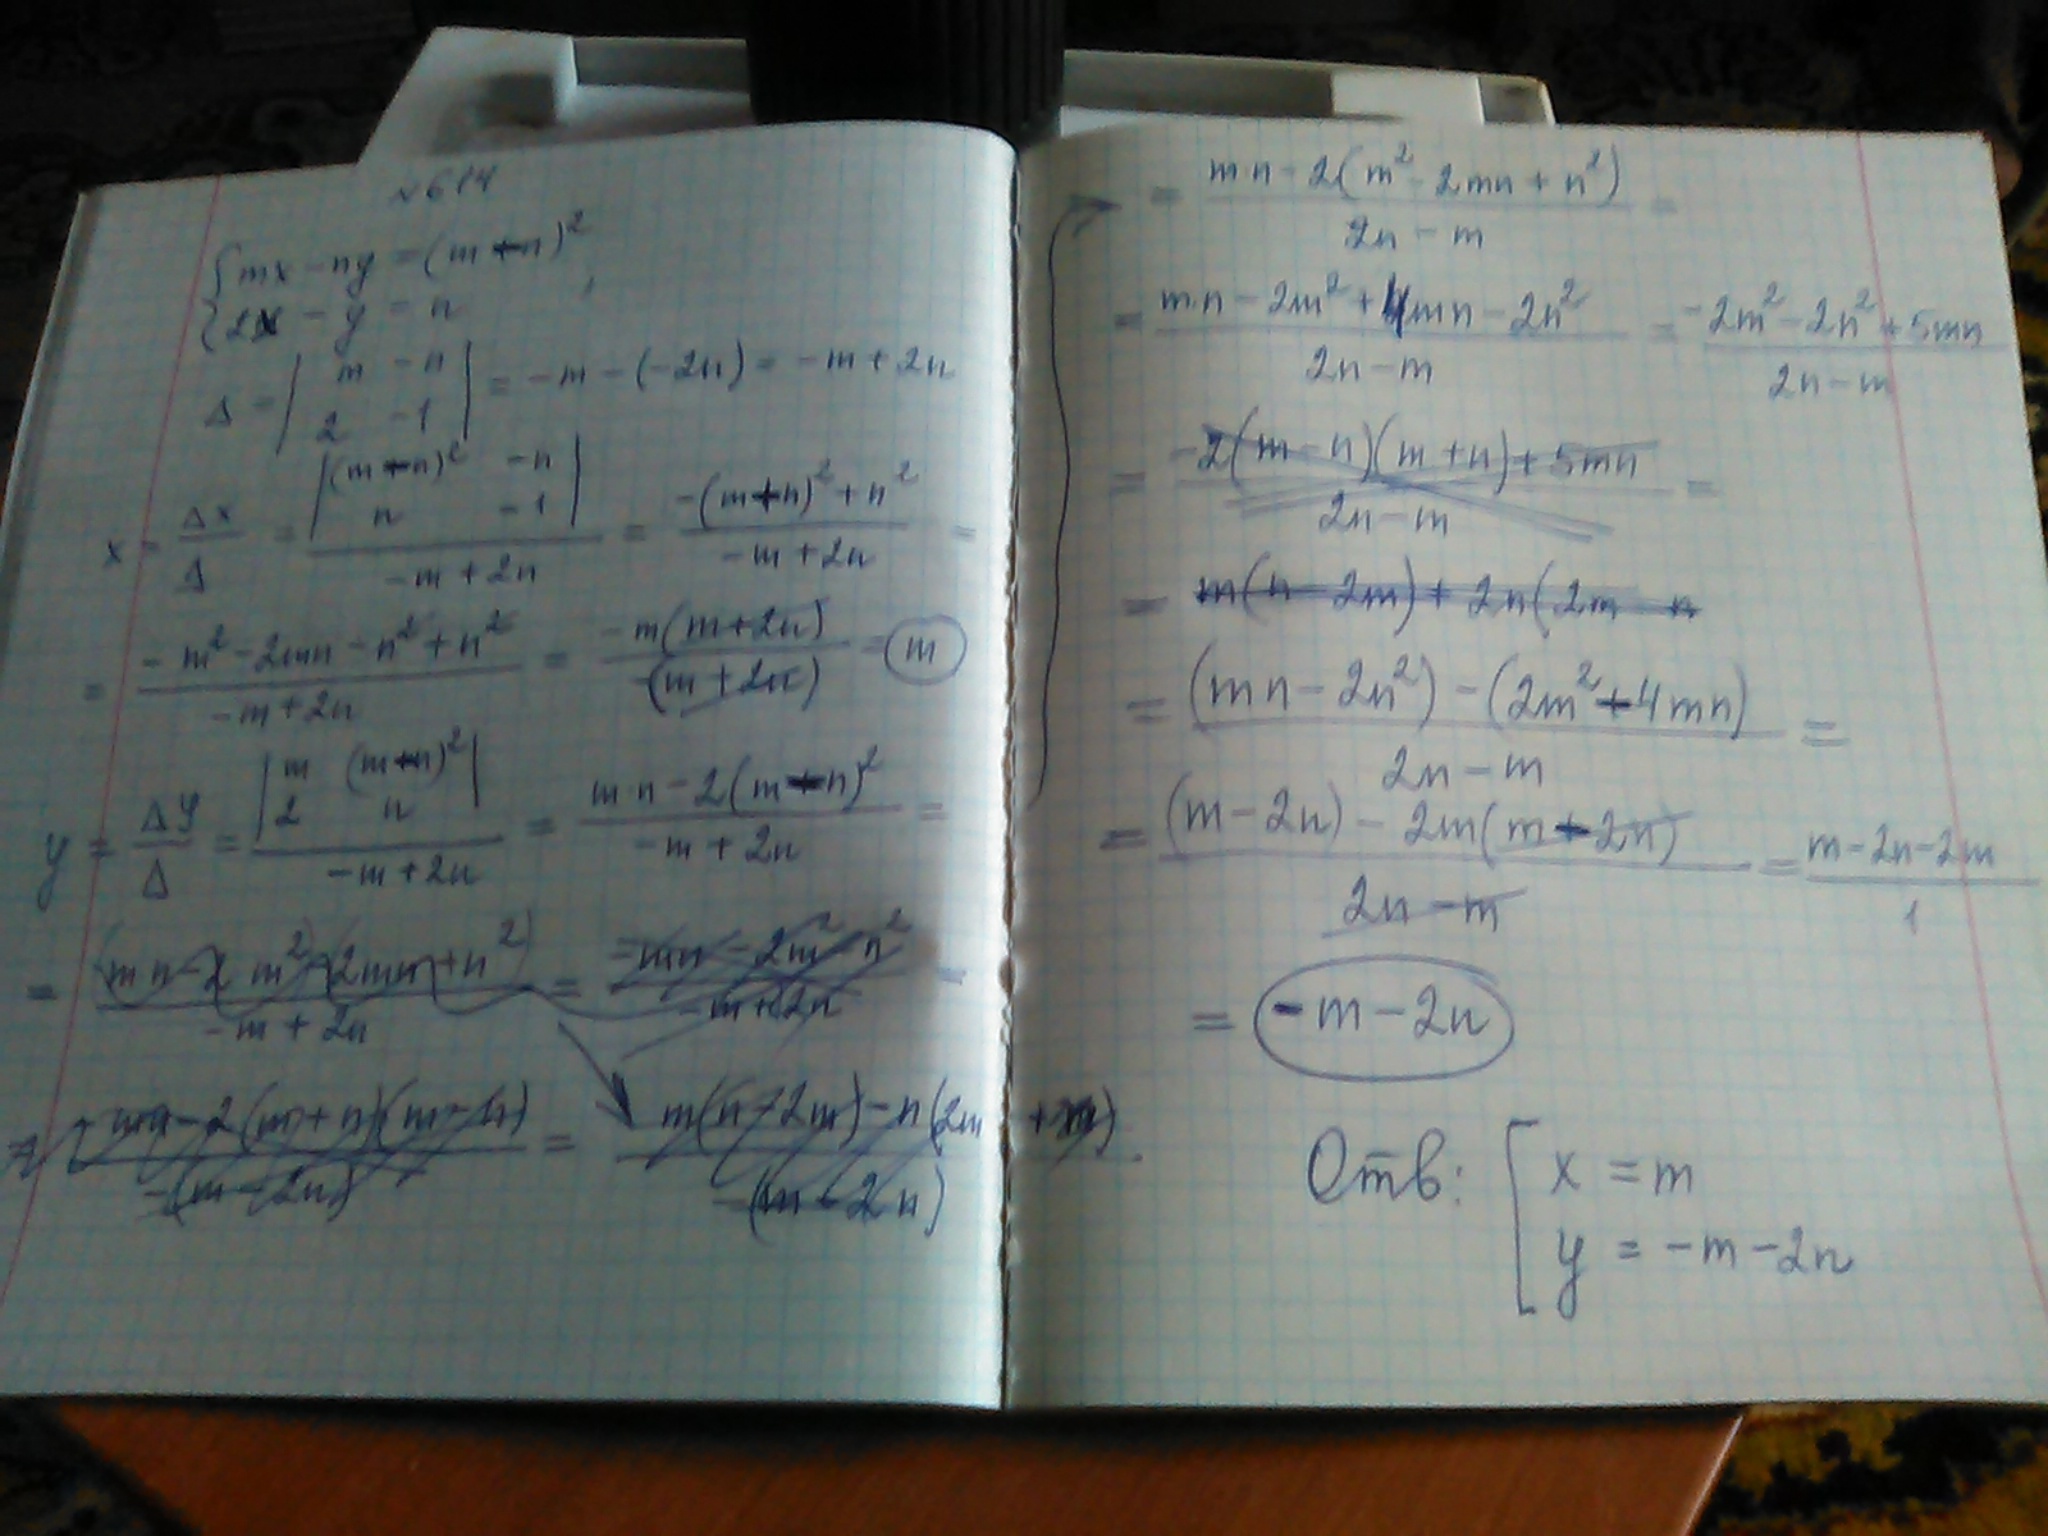 №614
{mx - ny = (m+n)²
{2x - y = n
Δ = |m -n; 2 -1| = -m - (-2n) = -m + 2n
x = Δx/Δ = |(m+n)² -n; n -1|/(-m+2n) = (-(m+n)² + n²)/(-m+2n) =
= (-m² - 2mn - n² + n²)/(-m+2n) = (-m(m+2n))/(-(m+2n)) = m
y = Δy/Δ = |m (m+n)²; 2 n|/(-m+2n) = (mn - 2(m+n)²)/(-m+2n) =
= (mn - 2m²) (2mn + n²)/(-m+2n) = (-mn - 2m² - n²)/(-m+2n) =
= (mn - 2(m+n)(m-n))/(-(m-2n)) = (m(n-2m) - n(2m+n))/(-(m-2n))
= (mn - 2(m² - 2mn + n²))/(2n - m) =
= (mn - 2m² + 4mn - 2n²)/(2n - m) = (-2m² - 2n² + 5mn)/(2n - m)
= (-2(m-n)(m+n) + 5mn)/(2n - m) =
= m(n - 2m) + 2n(2m - n
= ((mn - 2n²) - (2m² + 4mn))/(2n - m) =
= ((m - 2n) - 2m(m + 2n))/(2n - m) = (m - 2n - 2m)/1
= -m - 2n
Отв: [x = m
y = -m - 2n